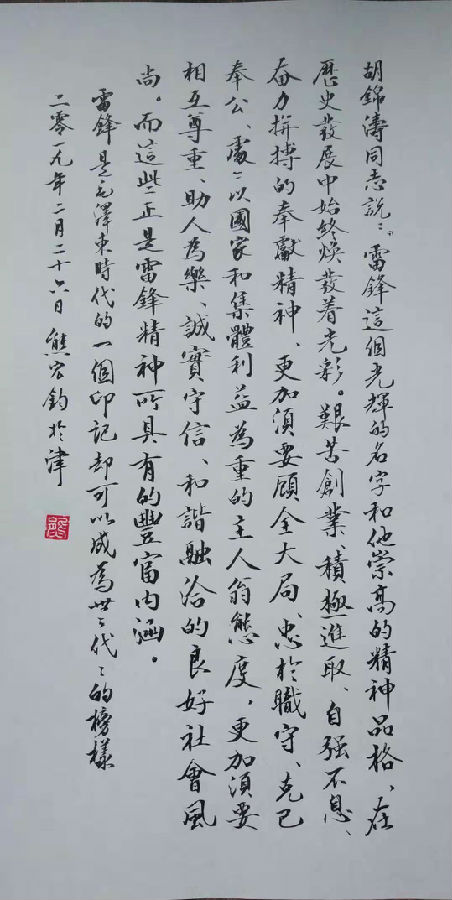 胡錦濤同志說：。雷鋒這個光輝的名字和他崇高的精神品格、在
歷史發展中始終煥發着光彩。艱苦創業、積極進取、自强不息、
奋力拼搏的奉獻精神、更加須要顧全大局、忠於職守、克己
奉公、處〻以國家和集體利益為重的主人翁態度，更加須要
相互尊重、助人為樂、誠實守信、和諧融洽的良好社會風
尚。而這些正是雷鋒精神所具有的豐富内涵。
雷鋒是毛澤東時代的一個印記却可以成為世〻代〻的榜樣
二零一九年二月二十六日熊宏鈞於津